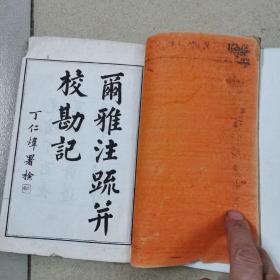 爾雅注疏并
校勘記
丁仁煒署檢